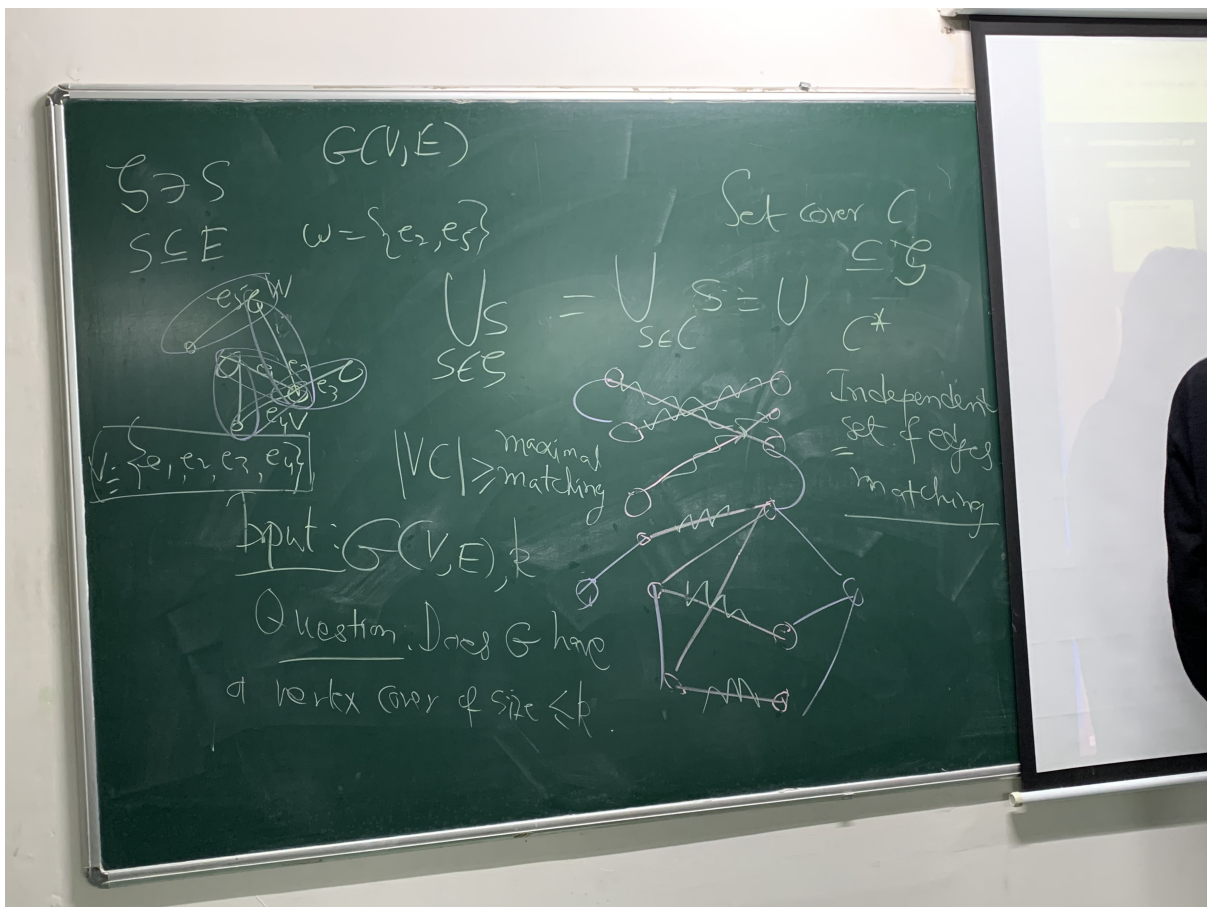 G(V,E)
ζ ∋ S
S ⊆ E
w = {e₂, e₅}
Set cover C
⊆ ζ
⋃ S = ⋃ S = U
S∈ζ S∈C
C*
e₅ W
e₃
e₄ V
V = {e₁, e₂, e₃, e₄}
|VC| ≥ maximal
matching
Independent
set of edges
=
matching
Input: G(V,E), k
Question. Does G have
a vertex cover of size ≤ k.